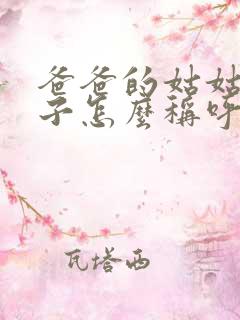 爸爸的姑姑
子怎麼稱呼
瓦塔西